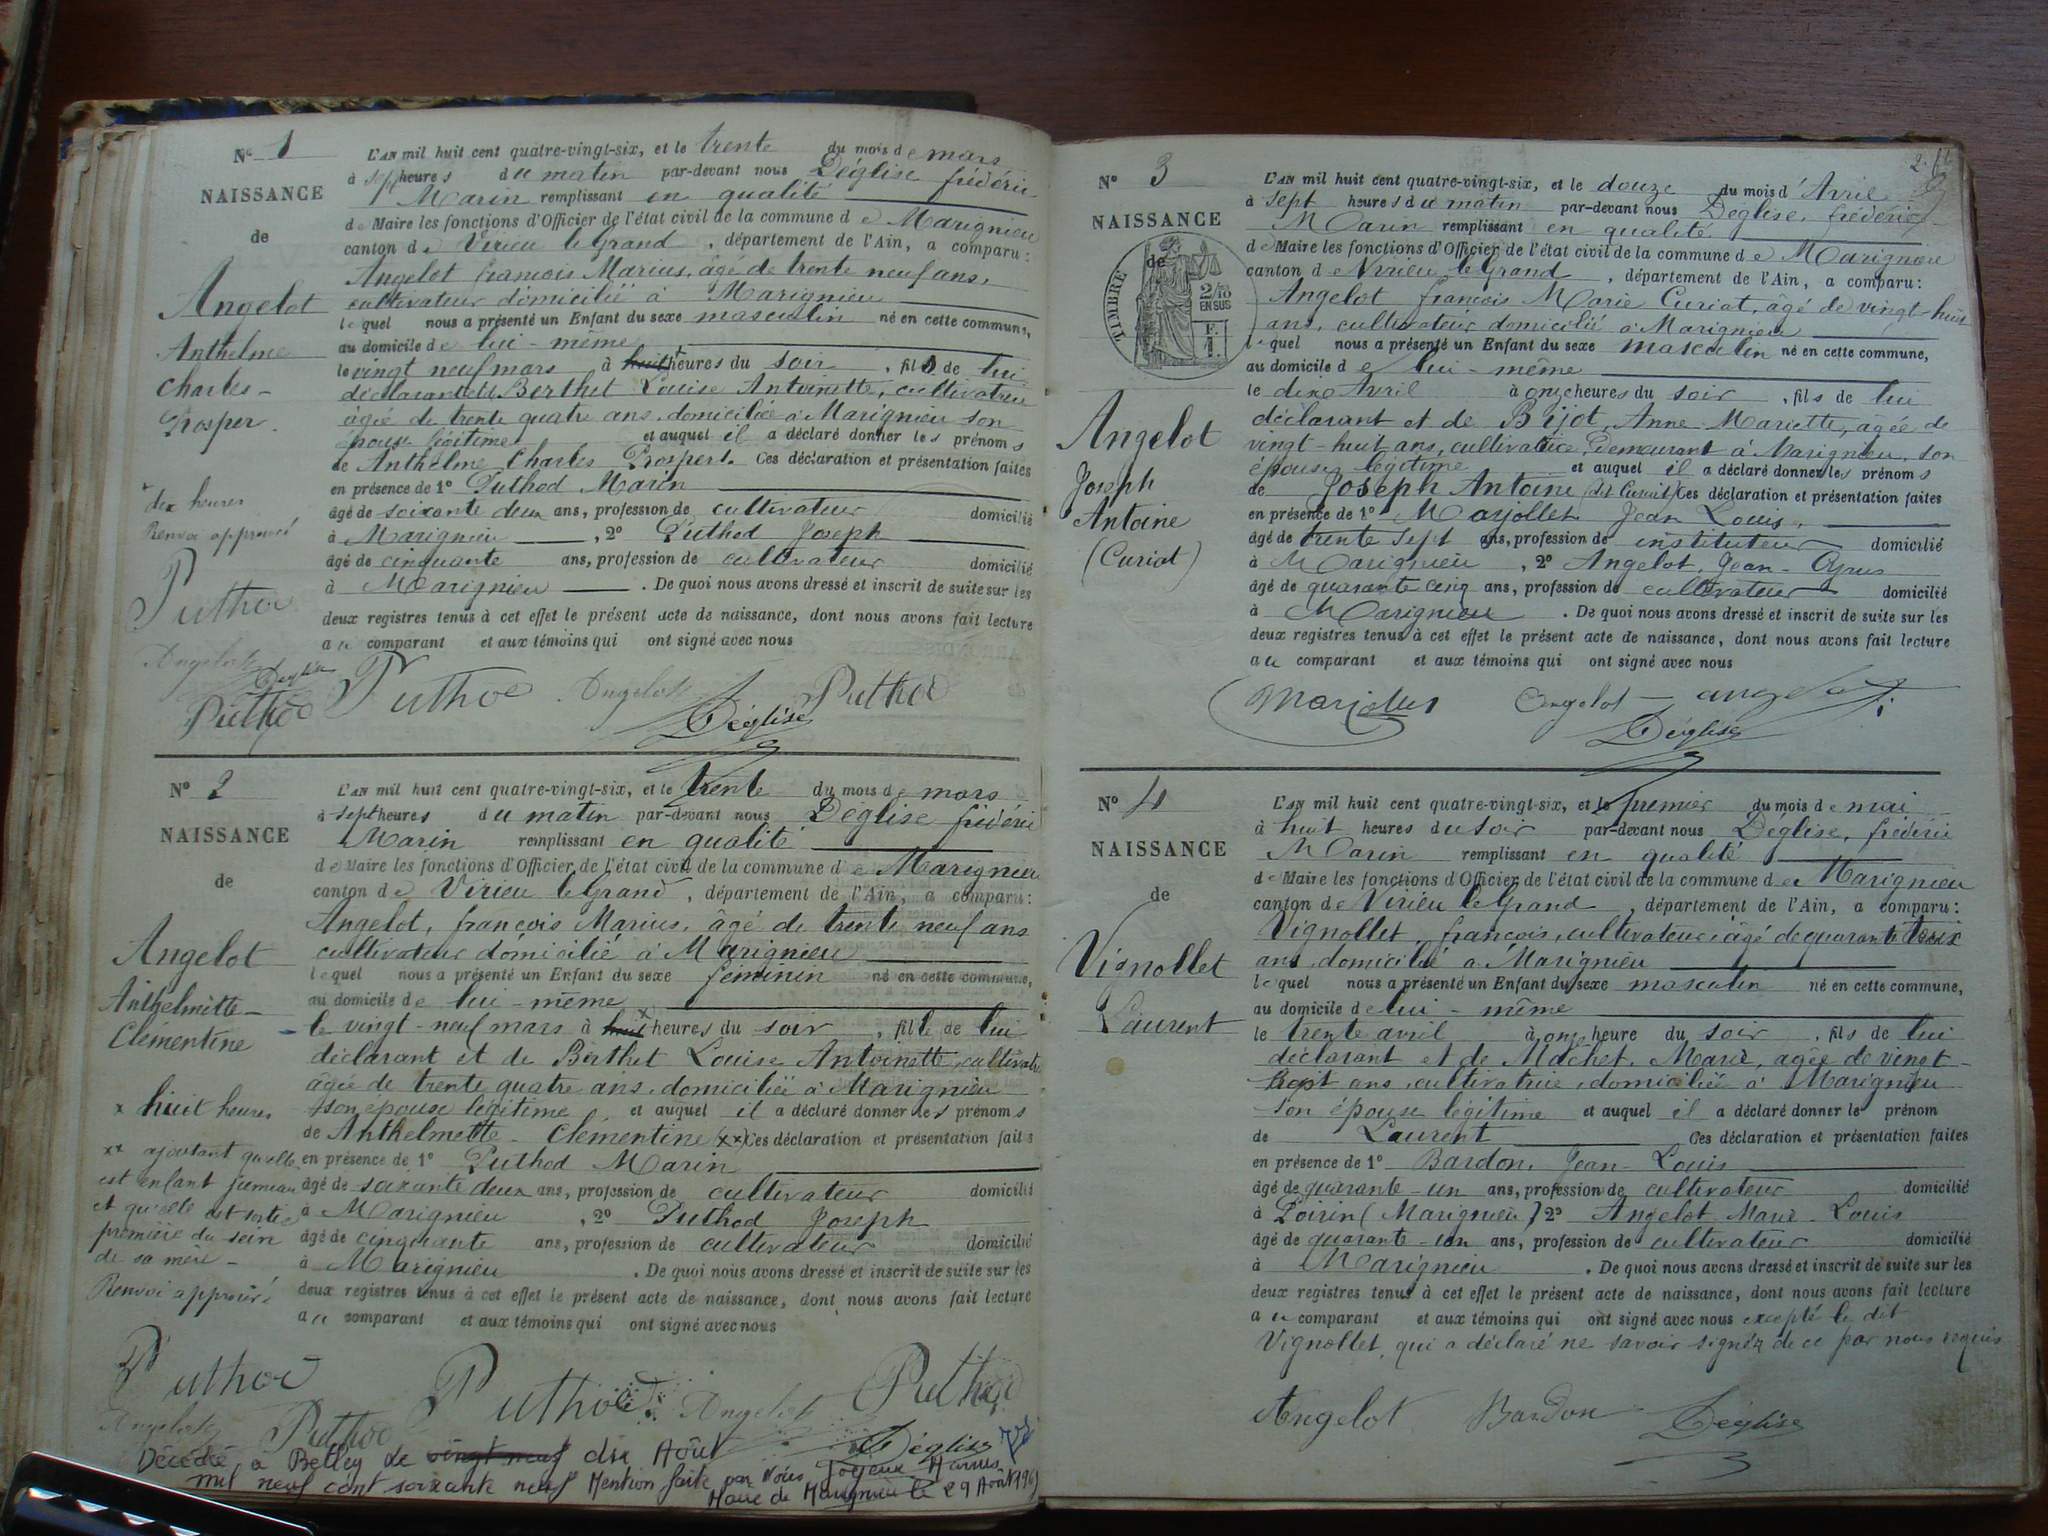 N° 1
NAISSANCE
de
Angelot
Anthelme
Charles-
Prosper.
dix heures
Renvoi approuvé
Puthod
Angelot
Déglise
Puthod
L'AN mil huit cent quatre-vingt-six, et le trente du mois de mars
à sept heures du matin par-devant nous Déglise frédéric
Marin remplissant en qualité
de Maire les fonctions d'Officier de l'état civil de la commune de Marignieu
canton de Virieu le Grand, département de l'Ain, a comparu:
Angelot francois Marius, âgé de trente neuf ans,
cultivateur domicilié à Marignieu
lequel nous a présenté un Enfant du sexe masculin né en cette commune,
au domicile de lui-même
le vingt neuf mars à huit heures du soir, fils de lui
déclarant et de Berthet Louise Antoinette, cultivatrice
âgée de trente quatre ans, domiciliée à Marignieu son
épouse légitime et auquel il a déclaré donner les prénoms
de Anthelme Charles Prosper. Ces déclaration et présentation faites
en présence de 1° Puthod Marin
âgé de soixante deux ans, profession de cultivateur domicilié
à Marignieu, 2° Puthod Joseph
âgé de cinquante ans, profession de cultivateur domicilié
à Marignieu. De quoi nous avons dressé et inscrit de suite sur les
deux registres tenus à cet effet le présent acte de naissance, dont nous avons fait lecture
au comparant et aux témoins qui ont signé avec nous
Puthod Angelot Puthod
Déglise
N° 2
NAISSANCE
de
Angelot
Anthelmette-
Clémentine
x huit heures
xx ajoutant qu'elle
est enfant jumeau
et qu'elle est sortie
première du sein
de sa mère-
Renvoi approuvé
L'AN mil huit cent quatre-vingt-six, et le trente du mois de mars
à sept heures du matin par-devant nous Déglise frédéric
Marin remplissant en qualité
de Maire les fonctions d'Officier de l'état civil de la commune de Marignieu
canton de Virieu le Grand, département de l'Ain, a comparu:
Angelot, françois Marius, âgé de trente neuf ans
cultivateur domicilié à Marignieu
lequel nous a présenté un Enfant du sexe féminin né en cette commune,
au domicile de lui-même
le vingt-neuf mars à huit x heures du soir, fille de lui
déclarant et de Berthet Louise Antoinette, cultivatr
âgée de trente quatre ans, domiciliée à Marignieu
son épouse légitime et auquel il a déclaré donner les prénoms
de Anthelmette-Clémentine (xx) Ces déclaration et présentation faites
en présence de 1° Puthod Marin
âgé de soixante deux ans, profession de cultivateur domicilié
à Marignieu, 2° Puthod Joseph
âgé de cinquante ans, profession de cultivateur domicilié
à Marignieu. De quoi nous avons dressé et inscrit de suite sur les
deux registres tenus à cet effet le présent acte de naissance, dont nous avons fait lecture
au comparant et aux témoins qui ont signé avec nous
Puthod Puthod Angelot Puthod
Angelot Puthod Déglise
Décédée à Belley le vingt neuf dix Août
mil neuf cent soixante neuf Mention faite par Nous, Joyeux Marius
Maire de Marignieu le 29 Août 1969
N° 3
NAISSANCE
de
TIMBRE
2/10
EN SUS
Angelot
Joseph
Antoine
(Curiat)
L'AN mil huit cent quatre-vingt-six, et le douze du mois d'Avril
à sept heures du matin par-devant nous Déglise, frédéric
Marin remplissant en qualité
de Maire les fonctions d'Officier de l'état civil de la commune de Marignieu
canton de Virieu le Grand, département de l'Ain, a comparu:
Angelot françois Marie Curiat, âgé de vingt-huit
ans, cultivateur domicilié à Marignieu
lequel nous a présenté un Enfant du sexe masculin né en cette commune,
au domicile de lui-même
le dix Avril à onze heures du soir, fils de lui
déclarant et de Bijot, Anne-Mariette, âgée de
vingt-huit ans, cultivatrice, demeurant à Marignieu, son
épouse légitime et auquel il a déclaré donner les prénoms
de Joseph Antoine (dit Curiat) Ces déclaration et présentation faites
en présence de 1° Marjollet Jean Louis,
âgé de trente sept ans, profession de instituteur domicilié
à Marignieu, 2° Angelot, Jean-Cyrus
âgé de quarante cinq ans, profession de cultivateur domicilié
à Marignieu. De quoi nous avons dressé et inscrit de suite sur les
deux registres tenus à cet effet le présent acte de naissance, dont nous avons fait lecture
au comparant et aux témoins qui ont signé avec nous
Marjollet Angelot angelot
Déglise
N° 4
NAISSANCE
de
Vignollet
Laurent
L'AN mil huit cent quatre-vingt-six, et le premier du mois de mai
à huit heures du soir par-devant nous Déglise, frédéric
Marin remplissant en qualité
de Maire les fonctions d'Officier de l'état civil de la commune de Marignieu
canton de Virieu le Grand, département de l'Ain, a comparu:
Vignollet, françois, cultivateur, âgé de quarante trois
ans domicilié à Marignieu
lequel nous a présenté un Enfant du sexe masculin né en cette commune,
au domicile de lui-même
le trente avril à onze heure du soir, fils de lui
déclarant et de Machet, Marie, âgée de vingt-
sept ans, cultivatrice, domiciliée à Marignieu
son épouse légitime et auquel il a déclaré donner le prénom
de Laurent Ces déclaration et présentation faites
en présence de 1° Bardon, Jean-Louis
âgé de quarante-un ans, profession de cultivateur domicilié
à Poirin (Marignieu) 2° Angelot Marie-Louis
âgé de quarante-un ans, profession de cultivateur domicilié
à Marignieu. De quoi nous avons dressé et inscrit de suite sur les
deux registres tenus à cet effet le présent acte de naissance, dont nous avons fait lecture
au comparant et aux témoins qui ont signé avec nous excepté le dit
Vignollet, qui a déclaré ne savoir signer de ce par nous requis
Angelot Bardon Déglise